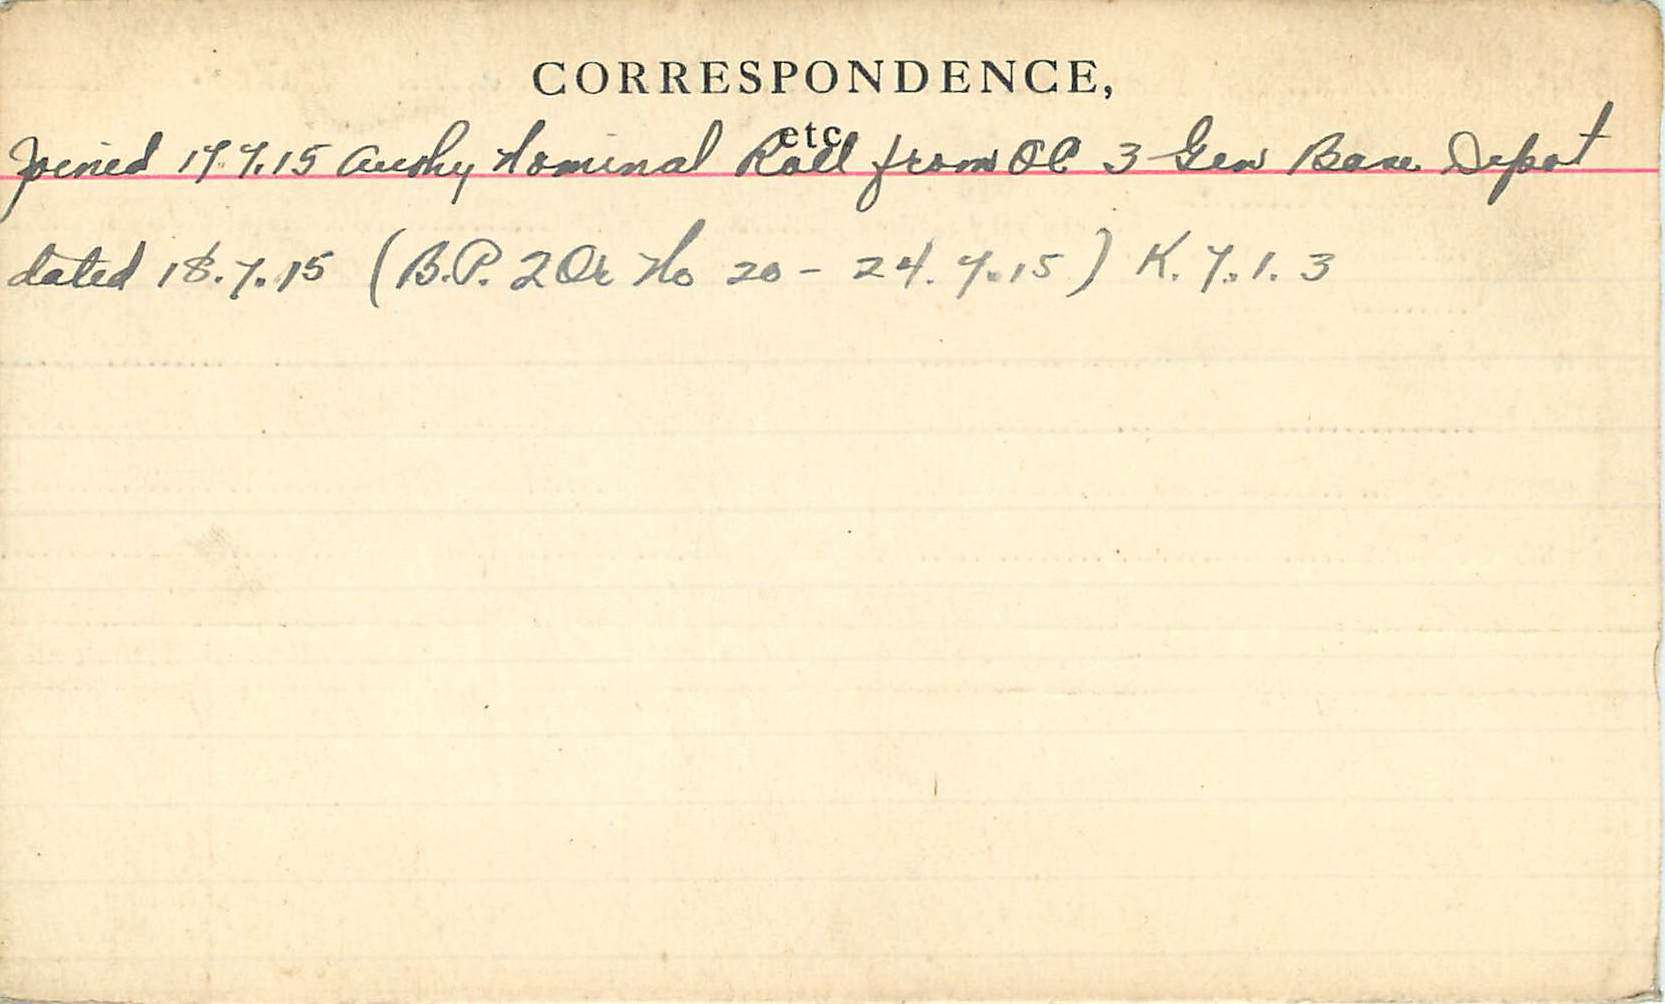 CORRESPONDENCE,
etc.
Joined 17.7.15 Authy Nominal Roll from OC 3 Gen Base Depot
dated 18.7.15 (B.P. 2 Or No 20 - 24.7.15) K.7.1.3